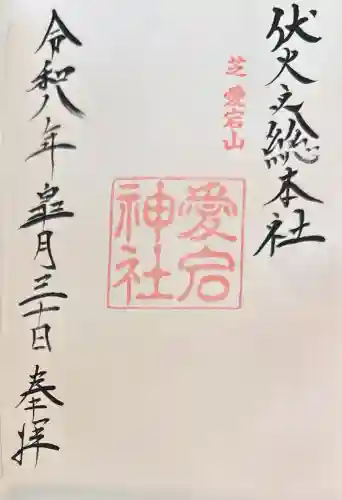 伏火之総本社
芝 愛宕山
愛宕
神社
令和八年皐月三十日 奉拝